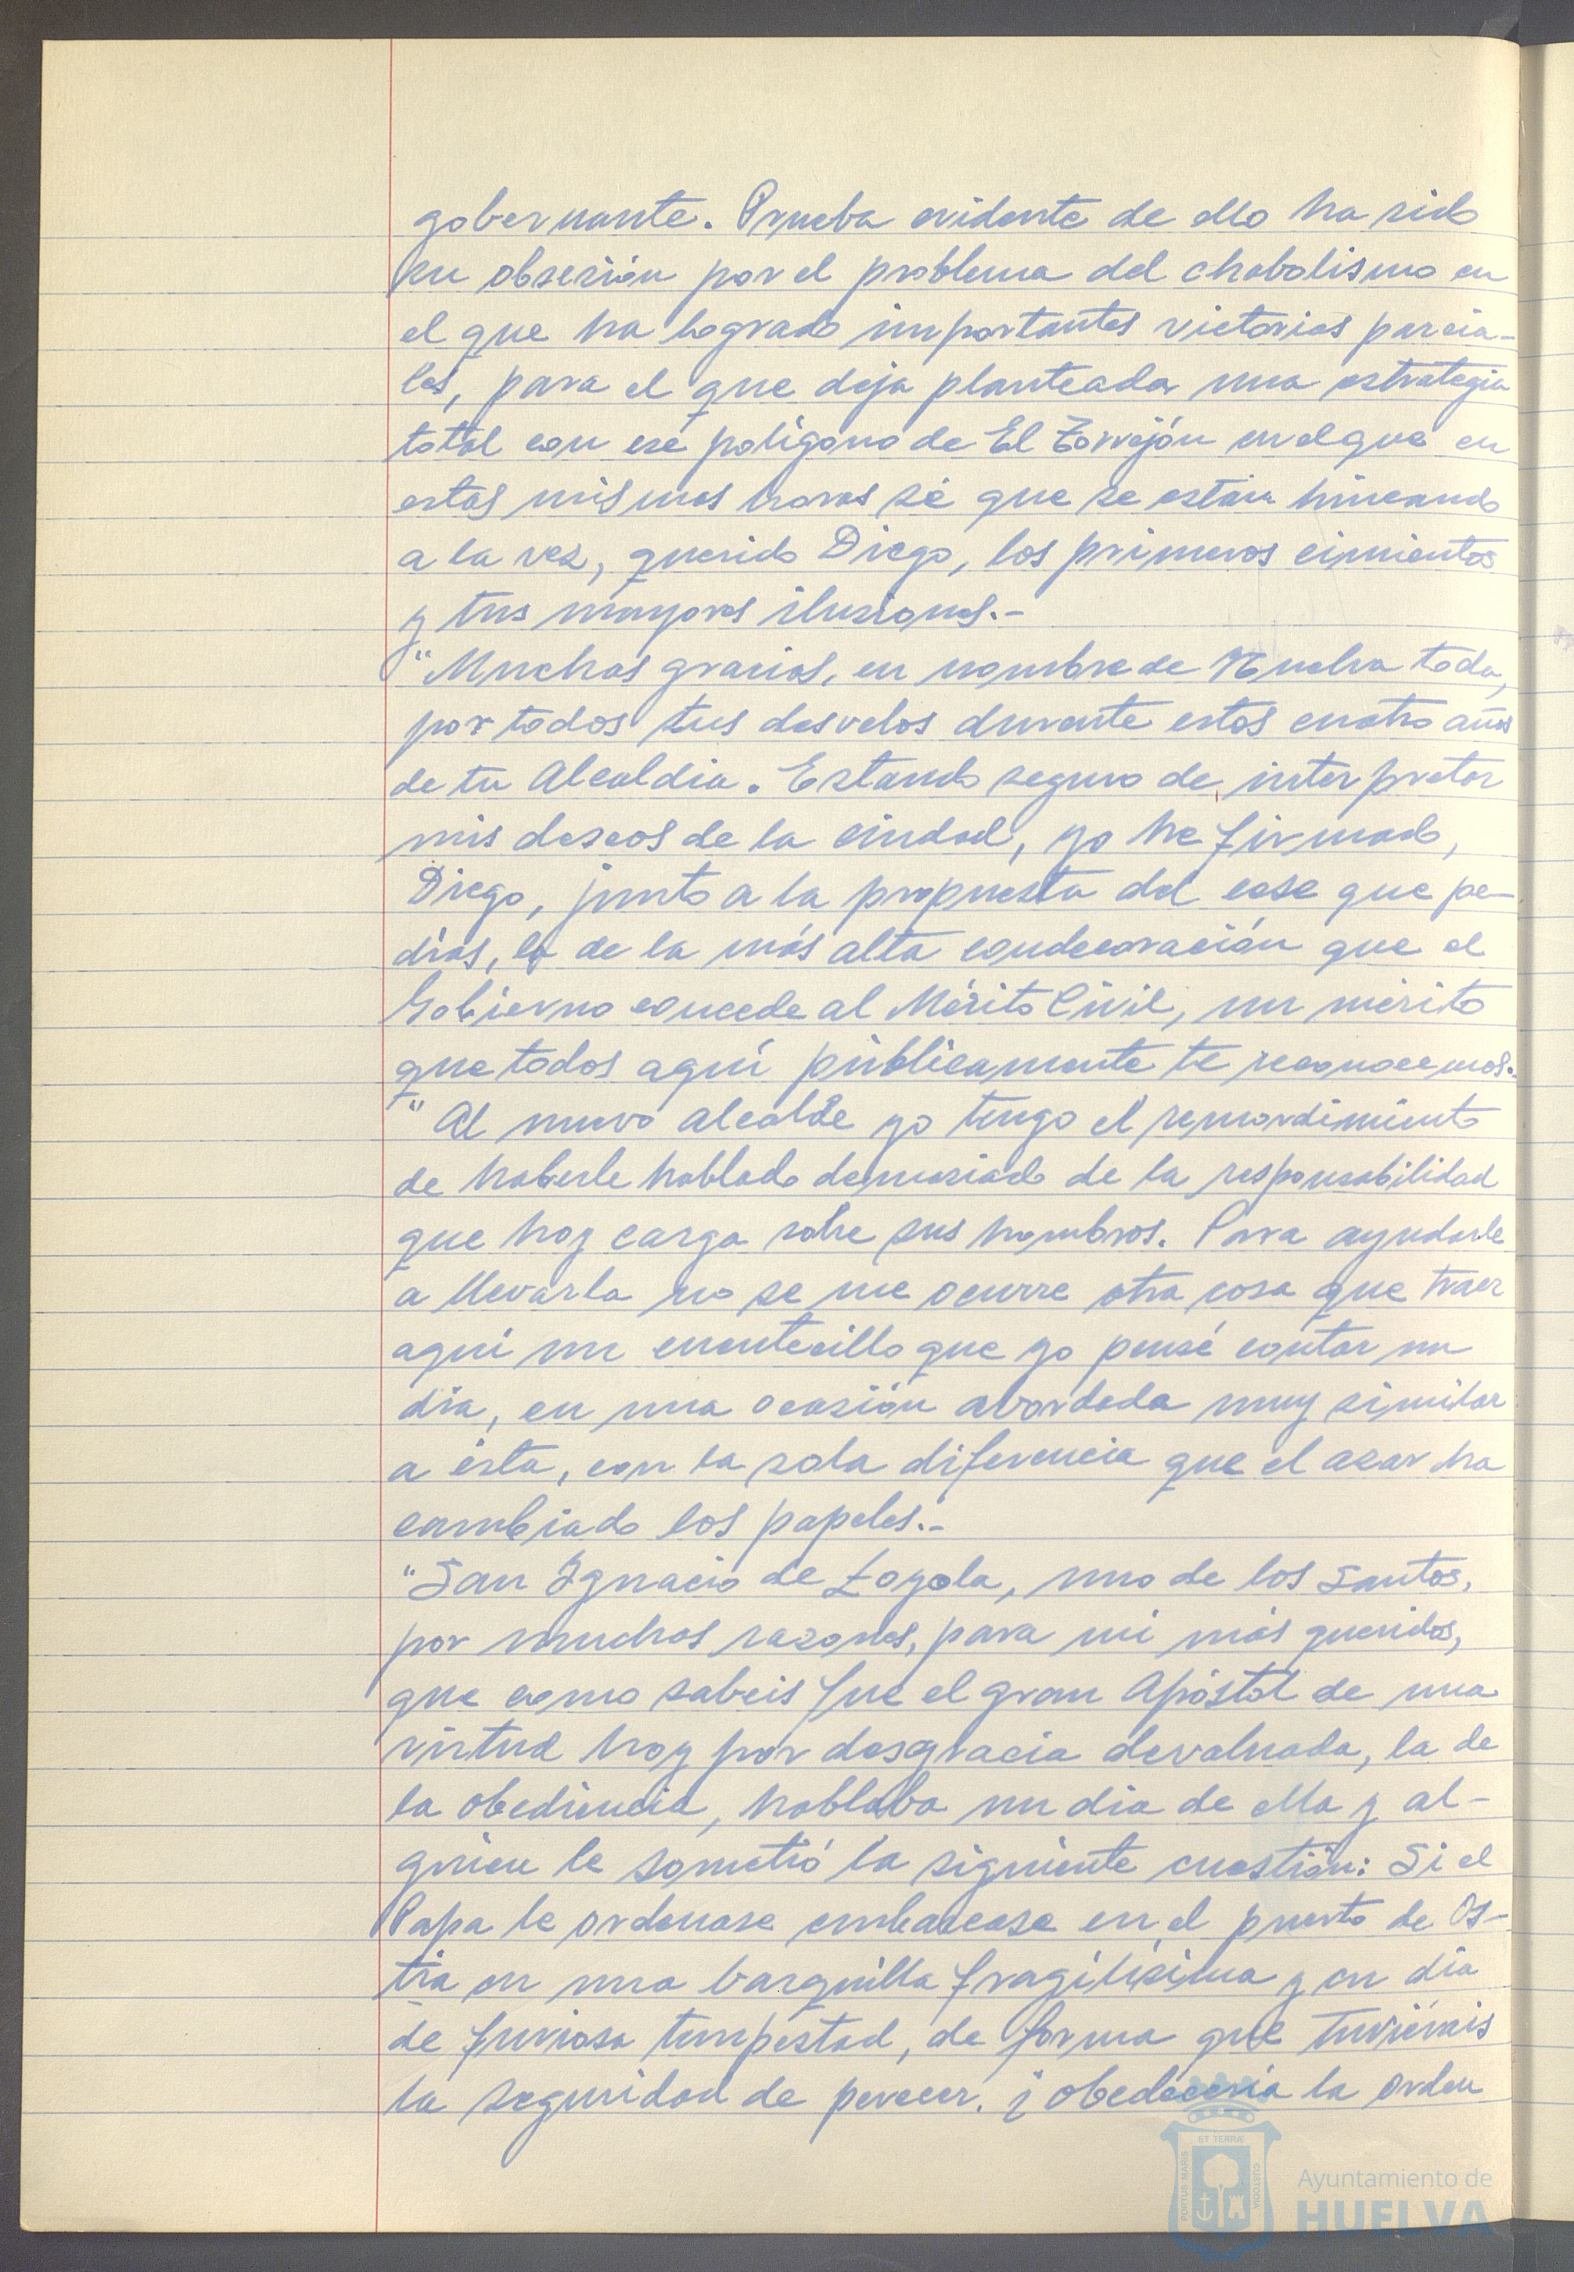 gobernante. Prueba evidente de ello ha sido
su obsesión por el problema del chabolismo en
el que ha logrado importantes victorias parcia-
les, para el que deja planteada una estrategia
total con ese polígono de El Torrejón en el que en
estas mismas horas sé que se están hincando
a la vez, querido Diego, los primeros cimientos
y tus mayores ilusiones.-
"Muchas gracias, en nombre de Huelva toda,
por todos tus desvelos durante estos cuatro años
de tu Alcaldía. Estando seguro de interpretar
mis deseos de la ciudad, yo he firmado,
Diego, junto a la propuesta del cese que pe-
días, la de la más alta condecoración que el
Gobierno concede al Mérito Civil, un mérito
que todos aquí públicamente te reconocemos.-
"Al nuevo alcalde yo tengo el remordimiento
de haberle hablado demasiado de la responsabilidad
que hoy carga sobre sus hombros. Para ayudarle
a llevarla no se me ocurre otra cosa que traer
aquí un cuentecillo que yo pensé contar un
día, en una ocasión abordada muy similar
a ésta, con la sola diferencia que el azar ha
cambiado los papeles.-
"San Ignacio de Loyola, uno de los Santos,
por muchas razones, para mí más queridos,
que como sabéis fue el gran Apóstol de una
virtud hoy por desgracia devaluada, la de
la obediencia, hablaba un día de ella y al-
guien le sometió la siguiente cuestión: Si el
Papa le ordenase embarcase en el puerto de Os-
tia en una barquilla fragilísima y en día
de furiosa tempestad, de forma que tuviérais
la seguridad de perecer. ¿obedecería la orden
PORTUS MARIS
ET TERRAE
CUSTODIA
Ayuntamiento de
HUELVA